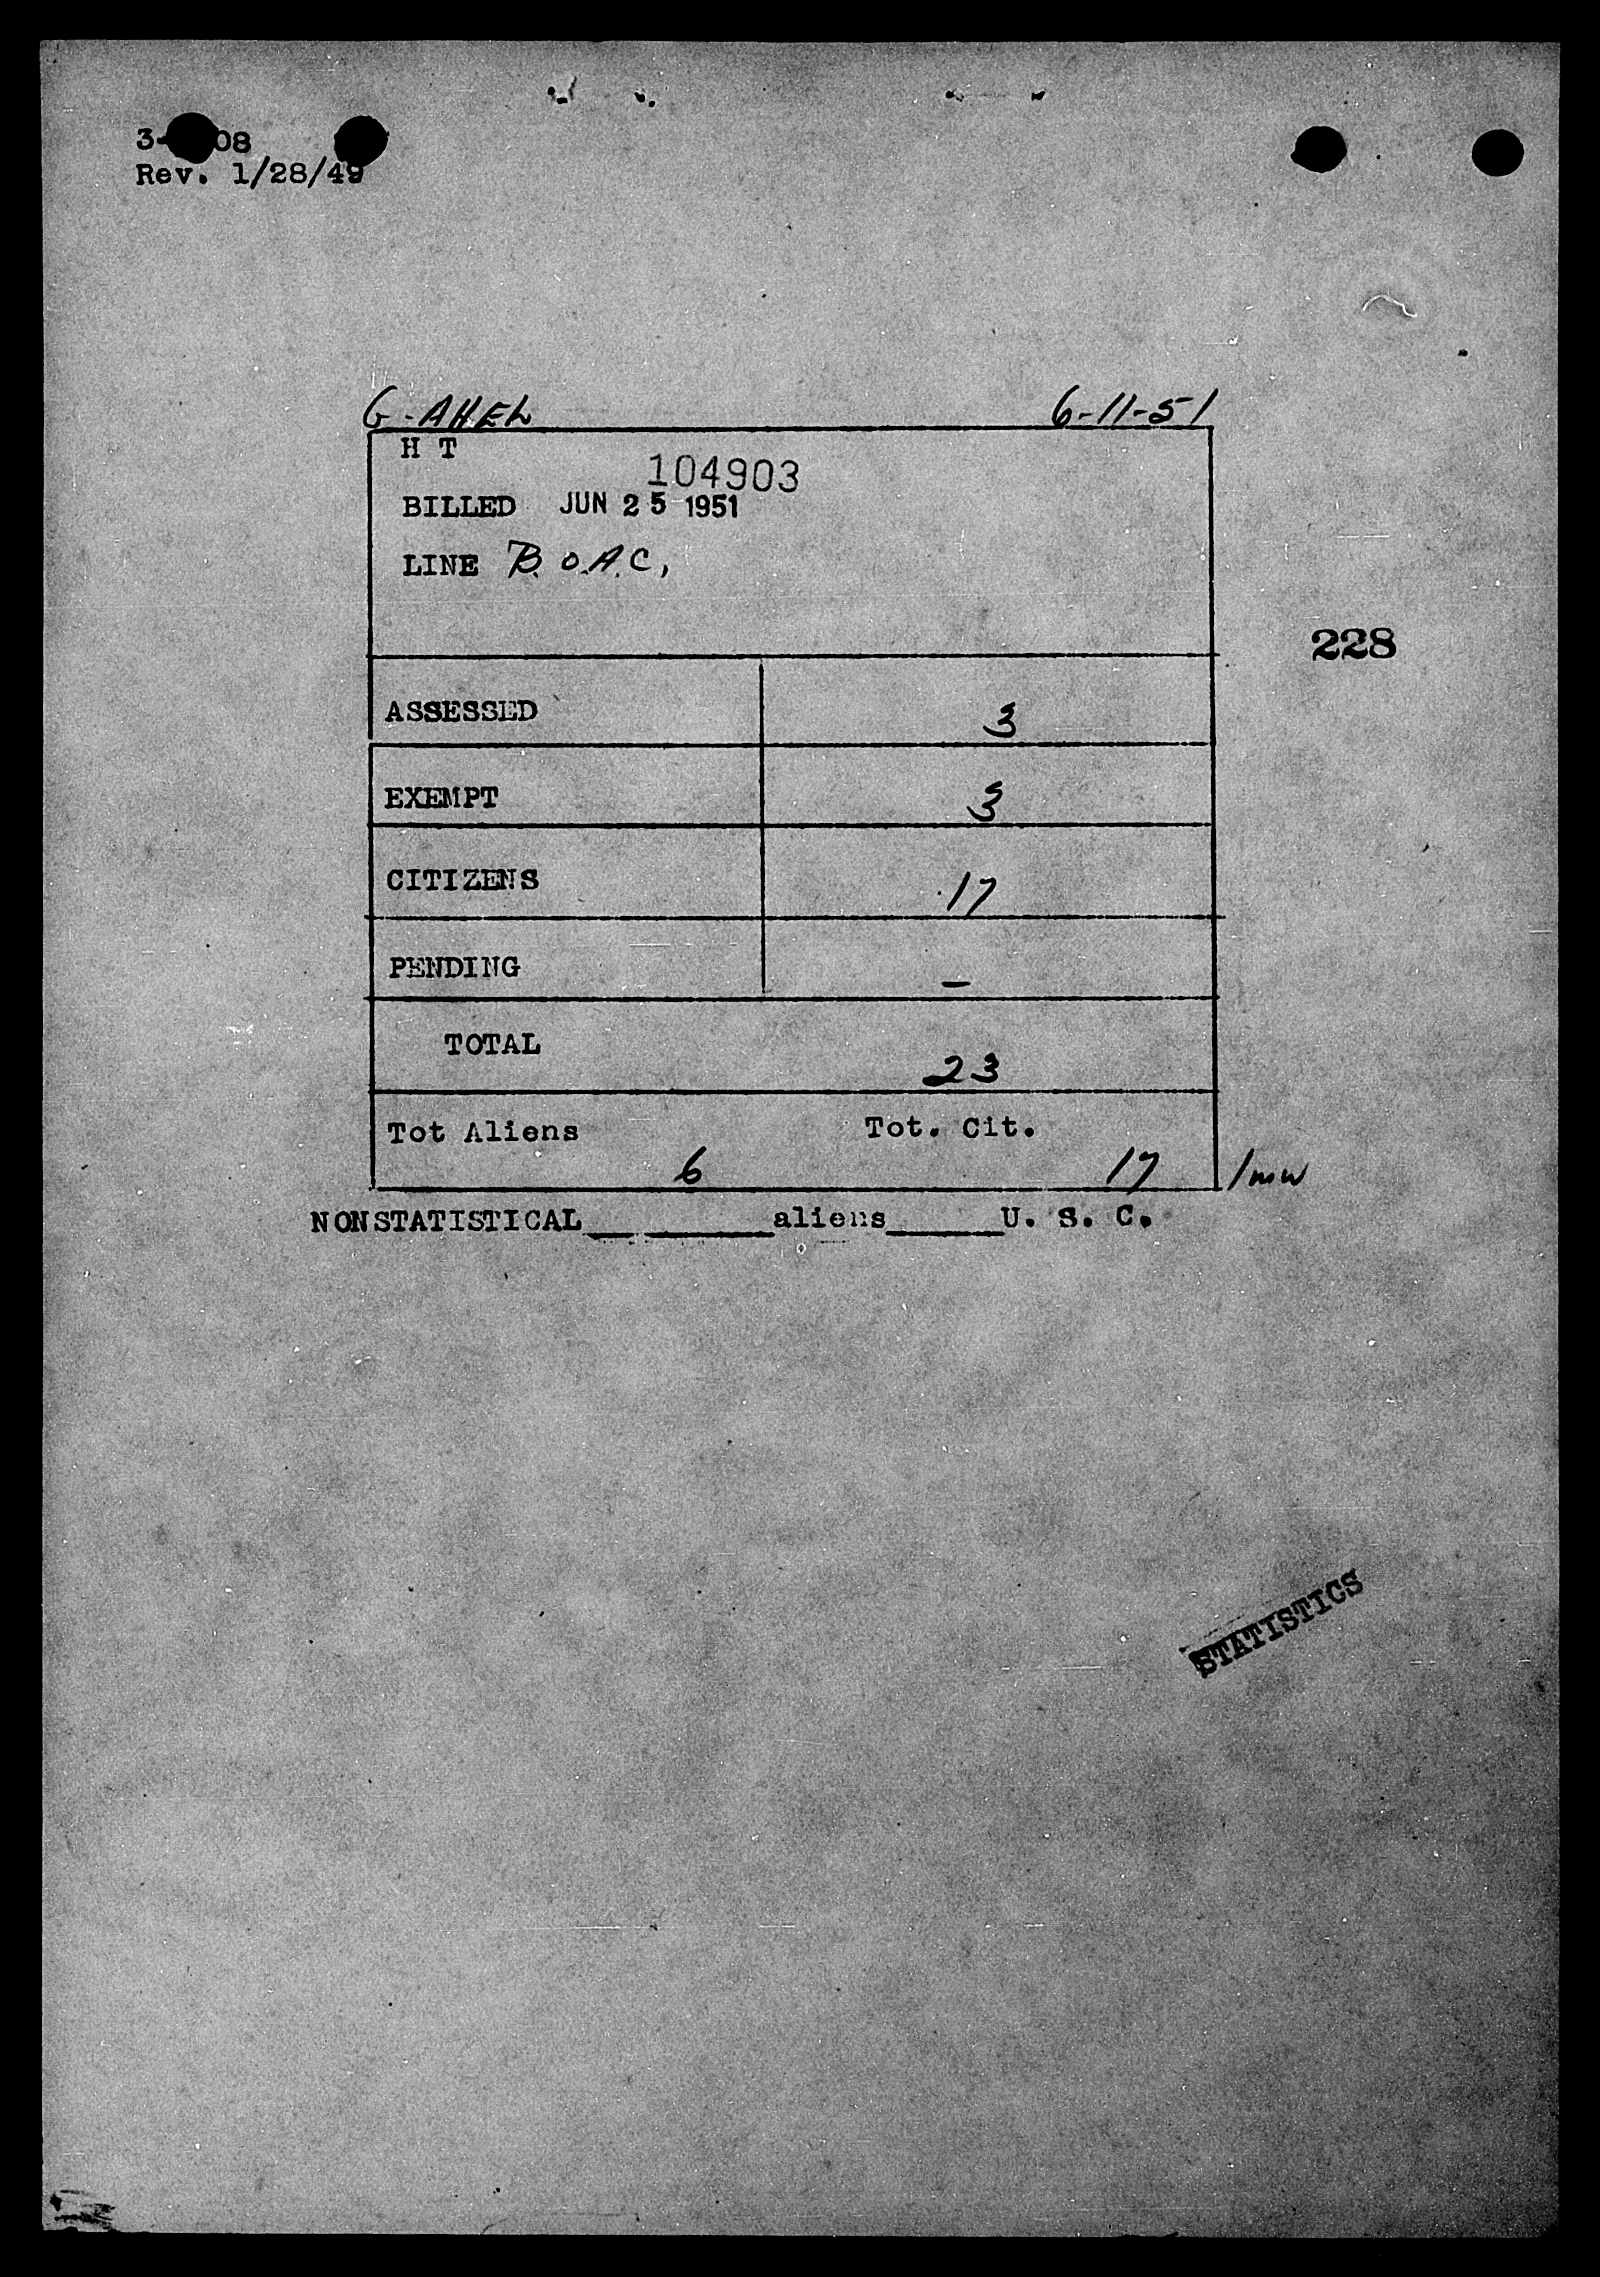 Rev. 1/28/49
G-AHEL 6-11-51
H T
104903
BILLED JUN 25 1951
LINE B.O.A.C,
228
ASSESSED 3
EXEMPT 3
CITIZENS 17
PENDING –
TOTAL 23
Tot Aliens Tot. Cit.
6 17 /mw
NONSTATISTICAL_______aliens_____U. S. C.
STATISTICS